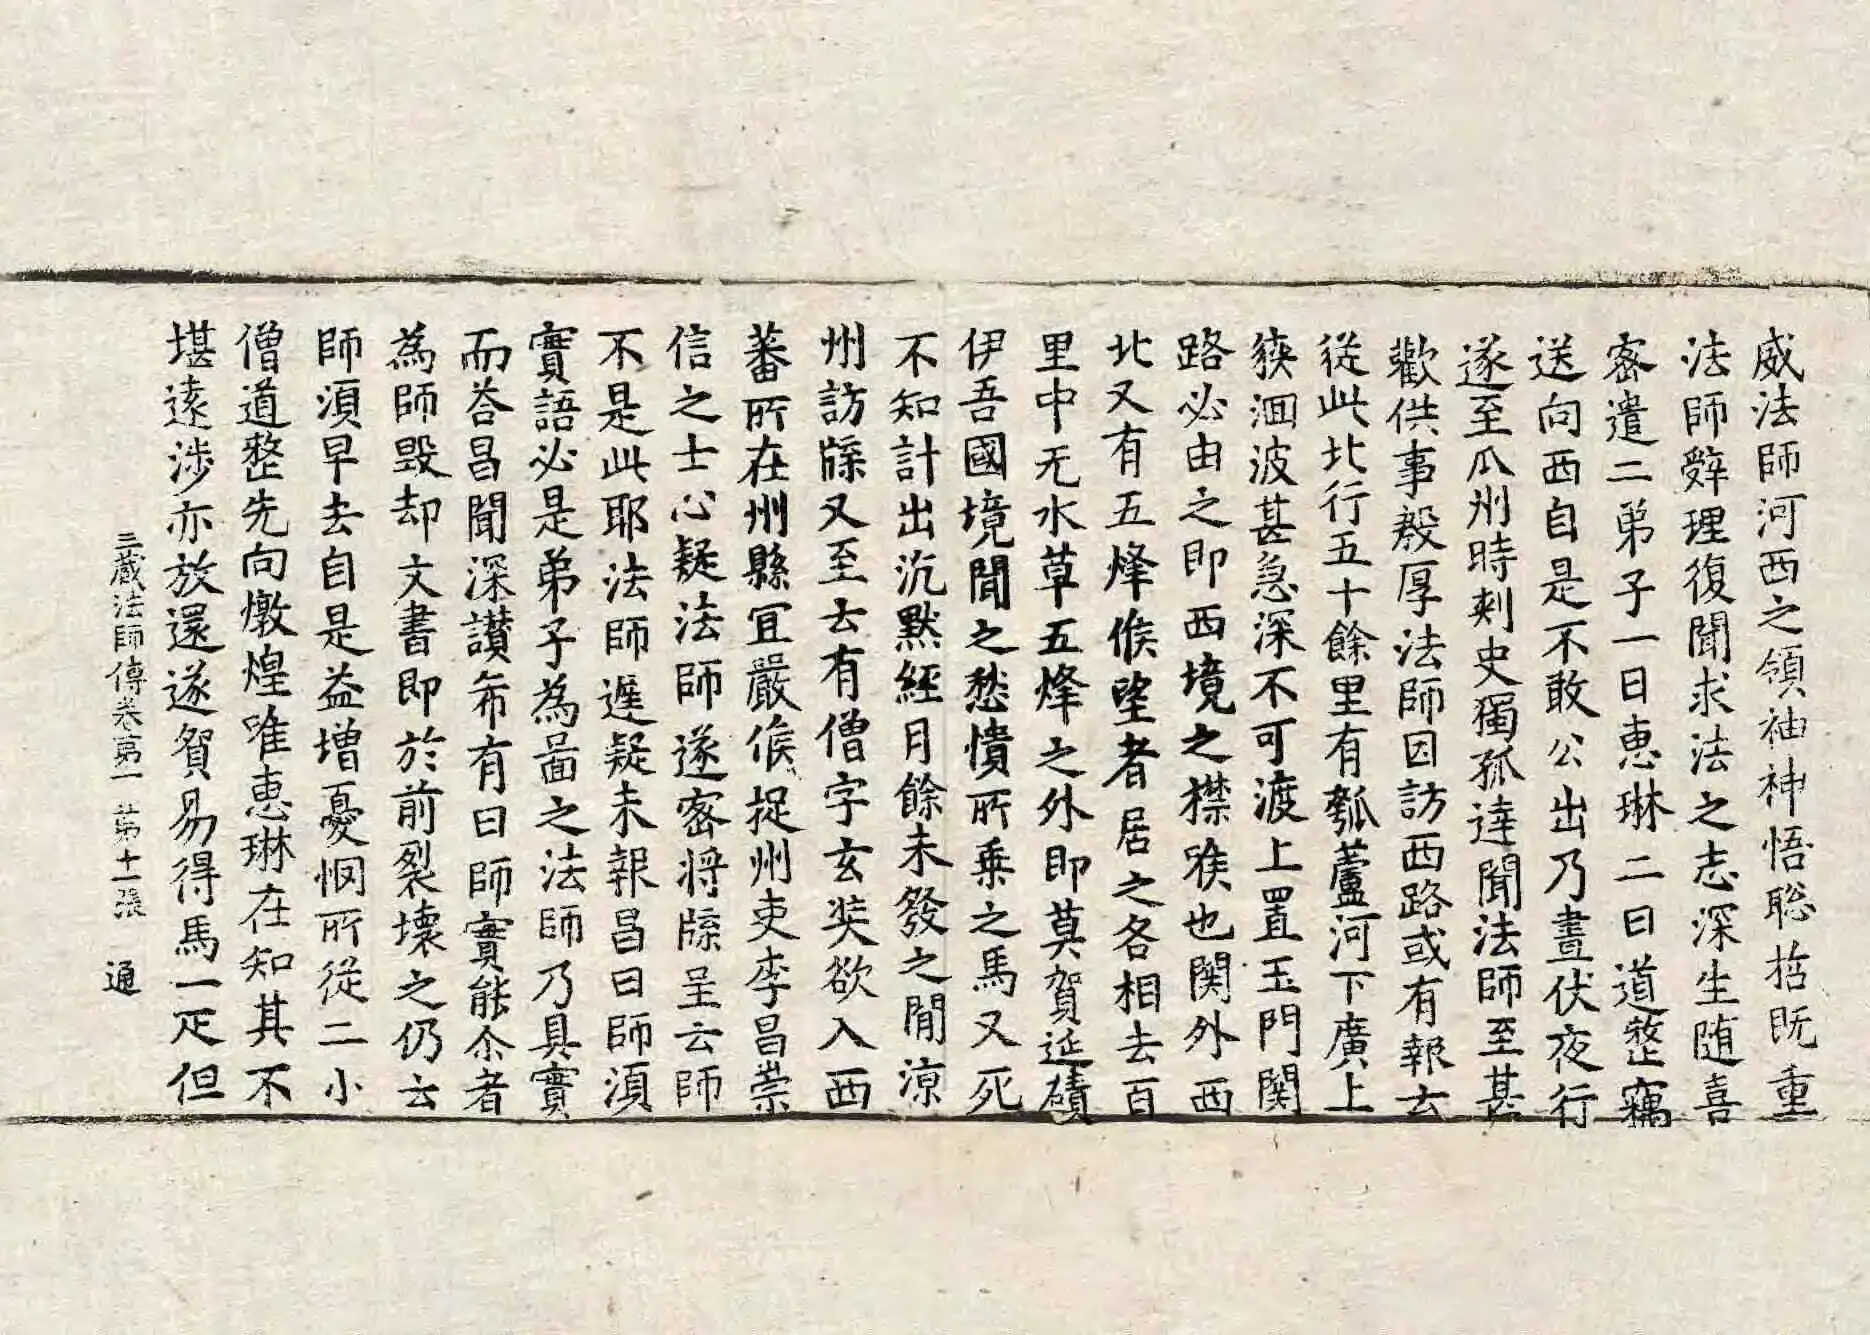 威法師河西之領袖神悟聡哲既重
法師辤理復聞求法之志深生随喜
密遣二弟子一曰恵琳二曰道整竊
送向西自是不敢公出乃晝伏夜行
遂至瓜州時刺史獨孤達聞法師至甚
歡供事殷厚法師因訪西路或有報云
從此北行五十餘里有瓠蘆河下廣上
狹洄波甚急深不可渡上置玉門関
路必由之即西境之襟喉也関外西
北又有五烽候望者居之各相去百
里中无水草五烽之外即莫賀延磧
伊吾國境聞之愁憒所乗之馬又死
不知計出沉默經月餘未發之閒涼
州訪牒又至云有僧字玄奘欲入西
蕃所在州縣宜嚴候捉州吏李昌崇
信之士心疑法師遂密将牒呈云師
不是此耶法師遲疑未報昌曰師須
實語必是弟子為啚之法師乃具實
而荅昌聞深讃希有曰師實能尒者
為師毀却文書即於前裂壊之仍云
師須早去自是益增憂惘所從二小
僧道整先向燉煌唯恵琳在知其不
堪遠涉亦放還遂貿易得馬一疋但
三藏法師傳卷第一 第十一張 通